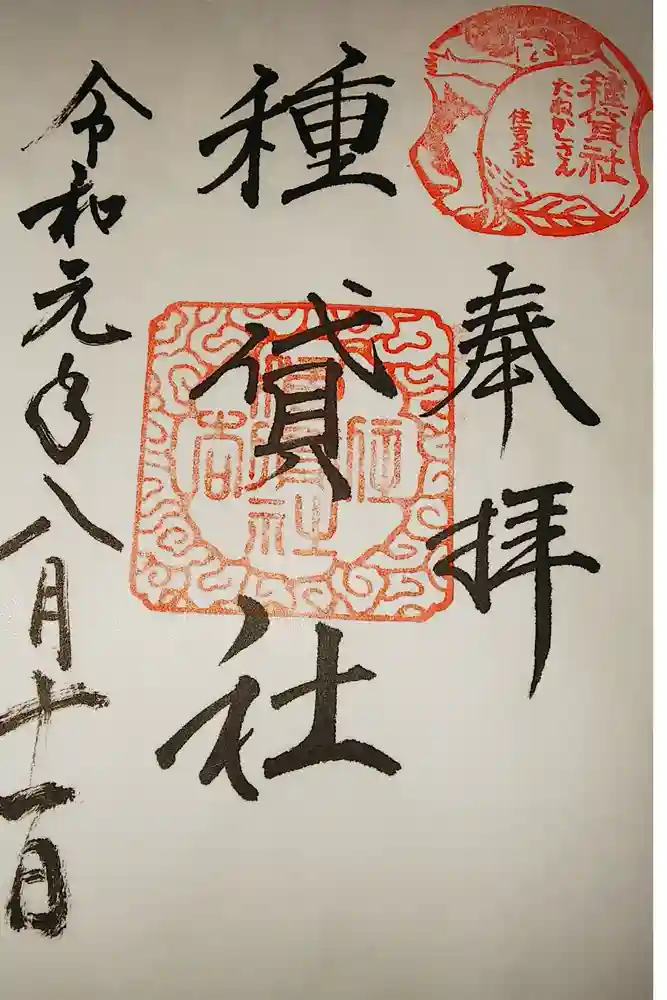 種貸社
たねかしさん
住吉大社
奉拝
種貸社
住吉
種貸社
令和元年八月十一日